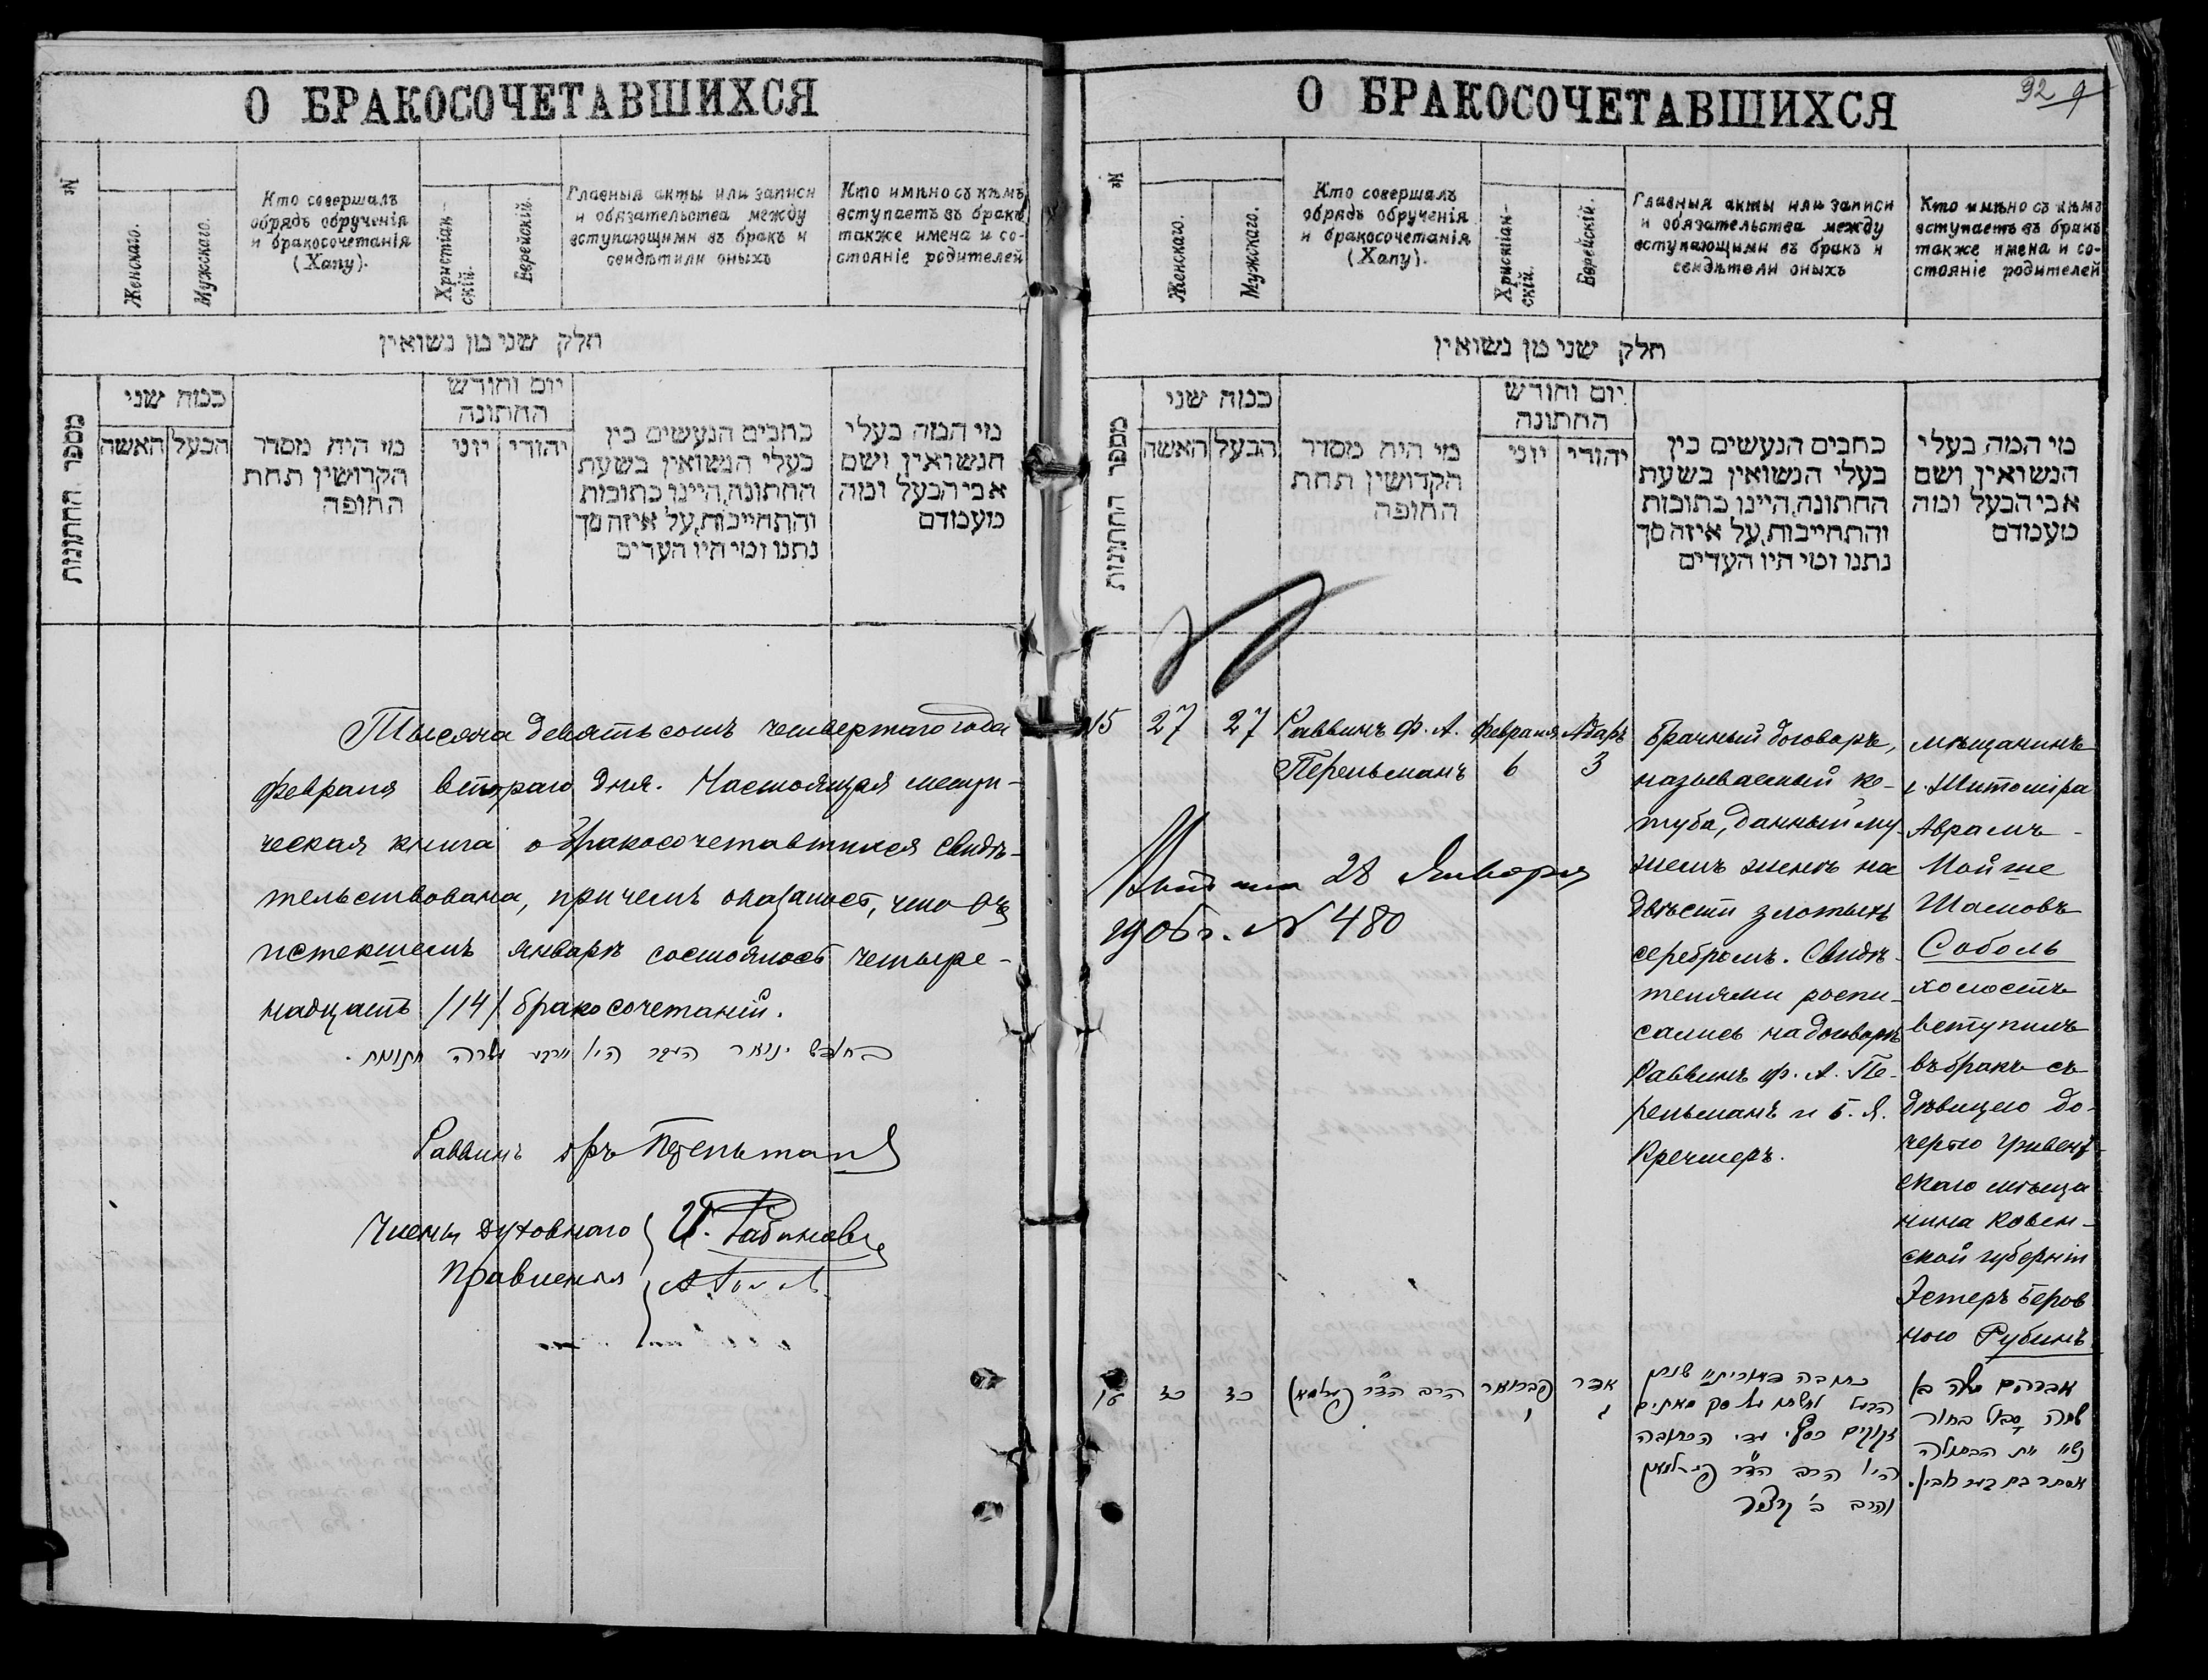 О БРАКОСОЧЕТАВШИХСЯ
№
Женскаго.
Мужскаго.
Кто совершалъ
обрядъ обрученія
и бракосочетанія
(Хапу).
Христіан-
скій.
Еврейскій.
Главныя акты или записи
и обязательства между
вступающими въ бракъ и
свидѣтили оныхъ
Кто имѣно съ кѣмъ
вступаетъ въ бракъ
также имена и со-
стояніе родителей
חלק שני מן נשואין
מספר החתונות
כמה שני
האשה
הבעל
מי היה מסדר
הקדושין תחת
החופה
יום וחודש
החתונה
יוני
יהודי
כתבים הנעשים בין
בעלי הנשואין בשעת
החתונה, היינו כתובות
והתחייבות, על איזה סך
נתנו ומי היו העדים
מי המה בעלי
הנשואין ושם
אבי הבעל ומה
מעמדם
Тысяча девятьсотъ четвертаго года
февраля второго дня. Настоящая метри-
ческая книга о бракосочетавшихся свидѣ-
тельствована, при чемъ оказалось, что въ
истекшемъ январѣ состоялось четыре-
надцать /14/ бракосочетаній.
בחודש ינואר העבר היו ארבע עשרה חתונות.
Раввинъ Ф. Перельманъ
Члены Духовнаго
Правленія
О БРАКОСОЧЕТАВШИХСЯ
92
9
№
Женскаго.
Мужскаго.
Кто совершалъ
обрядъ обрученія
и бракосочетанія
(Хапу).
Хрисніан-
скій.
Еврейскій.
Главныя акты или записи
и обязательства между
вступающими въ бракъ и
свидѣтели оныхъ
Кто имѣно съ кѣмъ
вступаетъ въ бракъ
также имена и со-
стояніе родителей
חלק שני מן נשואין
מספר החתונות
כמה שני
האשה
הבעל
מי היה מסדר
הקדושין תחת
החופה
יום וחודש
החתונה
יוני
יהודי
כתבים הנעשים בין
בעלי הנשואין בשעת
החתונה, היינו כתובות
והתחייבות, על איזה סך
נתנו ומי היו העדים
מי המה בעלי
הנשואין ושם
אבי הבעל ומה
מעמדם
15
27
27
Раввинъ Ф. А.
Перельманъ
Февраля
6
Адаръ
3
Брачный договоръ,
называемый ке-
туба, данный му-
жемъ женѣ на
двѣсти злотыхъ
серебромъ. Свидѣ-
телями роспи-
сались на договорѣ
Раввинъ Ф. А. Пе-
рельманъ и Б. Я.
Кречмеръ.
мѣщанинъ
г. Житоміра
Аврамъ-
Мойше
Шамовъ
Соболь
холостъ
вступилъ
въ бракъ съ
дѣвицею до-
черью Гривен-
скаго мѣща-
нина Ковен-
ской губерніи
Эстеръ Беров-
ною Рубинъ
28 Января
1905 г. № 480
אדר
ג
פברואר
ו
הרב הד"ר פערלמאן
כז
כז
אברהם משה בן
סבול בחור
נשא את הבתולה
אסתר בת בער רובין.
היו הרב הד"ר פערלמאן
והרב ב' קרצמר